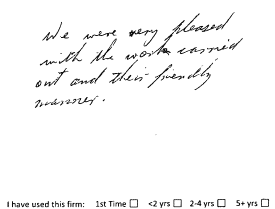 We were very pleased
with the work carried
out and their friendly
manner.
I have used this firm: 1st Time ☐ <2 yrs ☐ 2-4 yrs ☐ 5+ yrs ☐